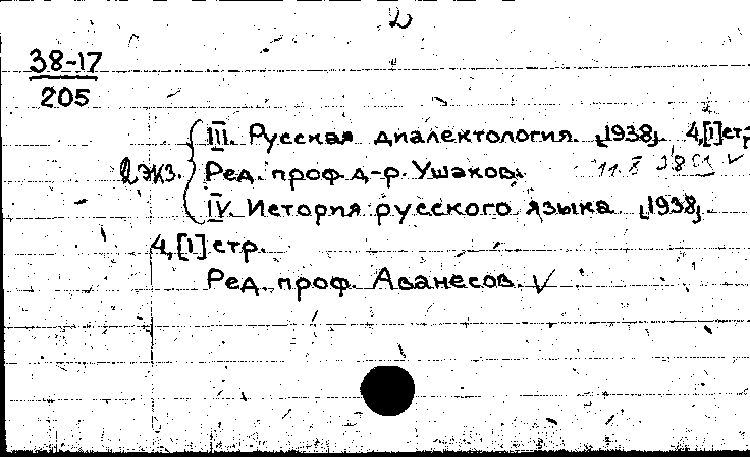 2
38-17
205
III. Русская диалектология. [1938]. 4,[1]стр
2 экз. Ред. проф. д-р. Ушаков.
IV. История русского языка. [1938].
4,[1] стр.
Ред. проф. Аванесов. V